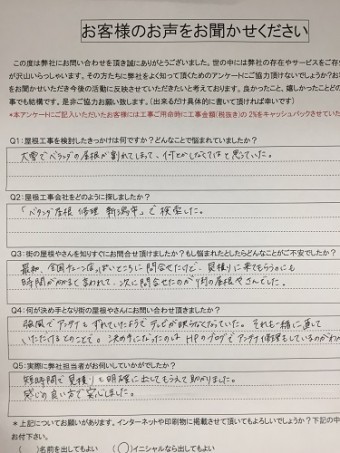 お客様のお声をお聞かせください
この度は弊社にお問い合わせを頂き誠にありがとうございました。世の中には弊社の存在やサービスをご存
が沢山いらっしゃいます。その方たちに弊社をよく知って頂くためのアンケートにご協力頂けないでしょうか？お
をお聞かせいただき今後の活動に反映させていただきたいと考えております。良かったこと、嬉しかったことどの
事でも結構です。是非ご協力お願い致します。（出来るだけ具体的に書いて頂ければ幸いです）
*本アンケートにご記入いただいたお客様には工事ご用命時に工事金額(税抜き)の2%をキャッシュバックさせてい
Q1：屋根工事を検討したきっかけは何ですか？どんなことで悩まれていましたか？
大雪でベランダの屋根が割れてしまって、何とかしなくてはと思っていた。
Q2：屋根工事会社をどのように探しましたか？
「ベランダ屋根 修理 新潟市」で検索した。
Q3：街の屋根やさんを知りすぐにお問合せ頂けましたか？もし悩まれたとしたらどんなことがご不安でしたか？
最初、全国チェーン店っぽいところに問合せたけど、見積りに来てもらうのにも
時間がかかると言われて、次に問合せたのが街の屋根やさんでした。
Q4：何が決め手となり街の屋根やさんにお問い合わせ頂きましたか？
強風でアンテナもずれていたようでテレビが映らなくなっていた。それも一緒に直して
いただけるとのことで。決め手になったのはHPのブログでアンテナ修理もしているのがわ
Q5：実際に弊社担当者がお伺いしていかがでしたか？
短時間で見積りも明確に出してもらえて助かりました。
感じの良い方で安心しました。
*上記についてお願いがあります。インターネットや印刷物に掲載させて頂いてもよろしいでしょうか？下記の中
お付下さい。
（ ）名前を出してもよい （○）イニシャルなら出してもよい